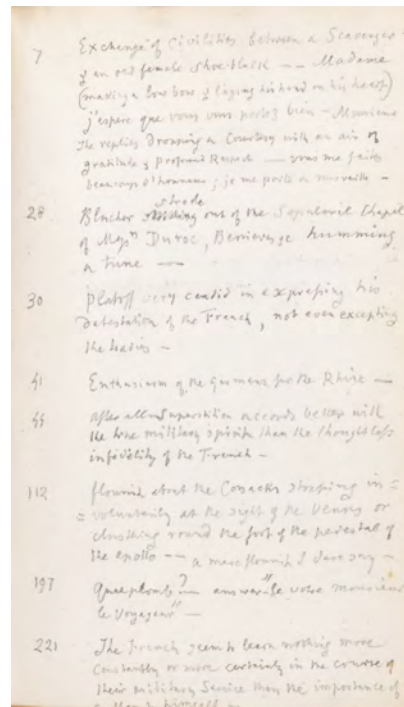 7 Exchange of Civilities between a Scavenger
& an old female shoe-black -- Madame
(making a low bow & laying his hand on his heart)
j'espere que vous vous portez bien - Monsieur
She replies dropping a Courtesy with an air of
gratitude & profound Respect — vous me faites
beaucoup d'honneur; je me porte a merveille -
strode
28 Blucher out of the Sepulcral Chapel
of Duroc, Bessieres &c humming
a tune —
30 Platoff very candid in expressing his
detestation of the French, not even excepting
the ladies -
41 Enthusiasm of the Germans for the Rhine —
44 After all Superstition accords better with
the true military spirit than the thoughtless
infidelity of the French -
112 flourish about the Cosacks stopping in=
=voluntarily at the sight of the Venus or
clustering round the foot of the pedestal of
the Apollo -- a mere flourish I dare say -
197 — answer "le votre monsieur
le Voyageur" -
221 The French seem to learn nothing more
constantly or more certainly in the course of
their military Service than the importance of